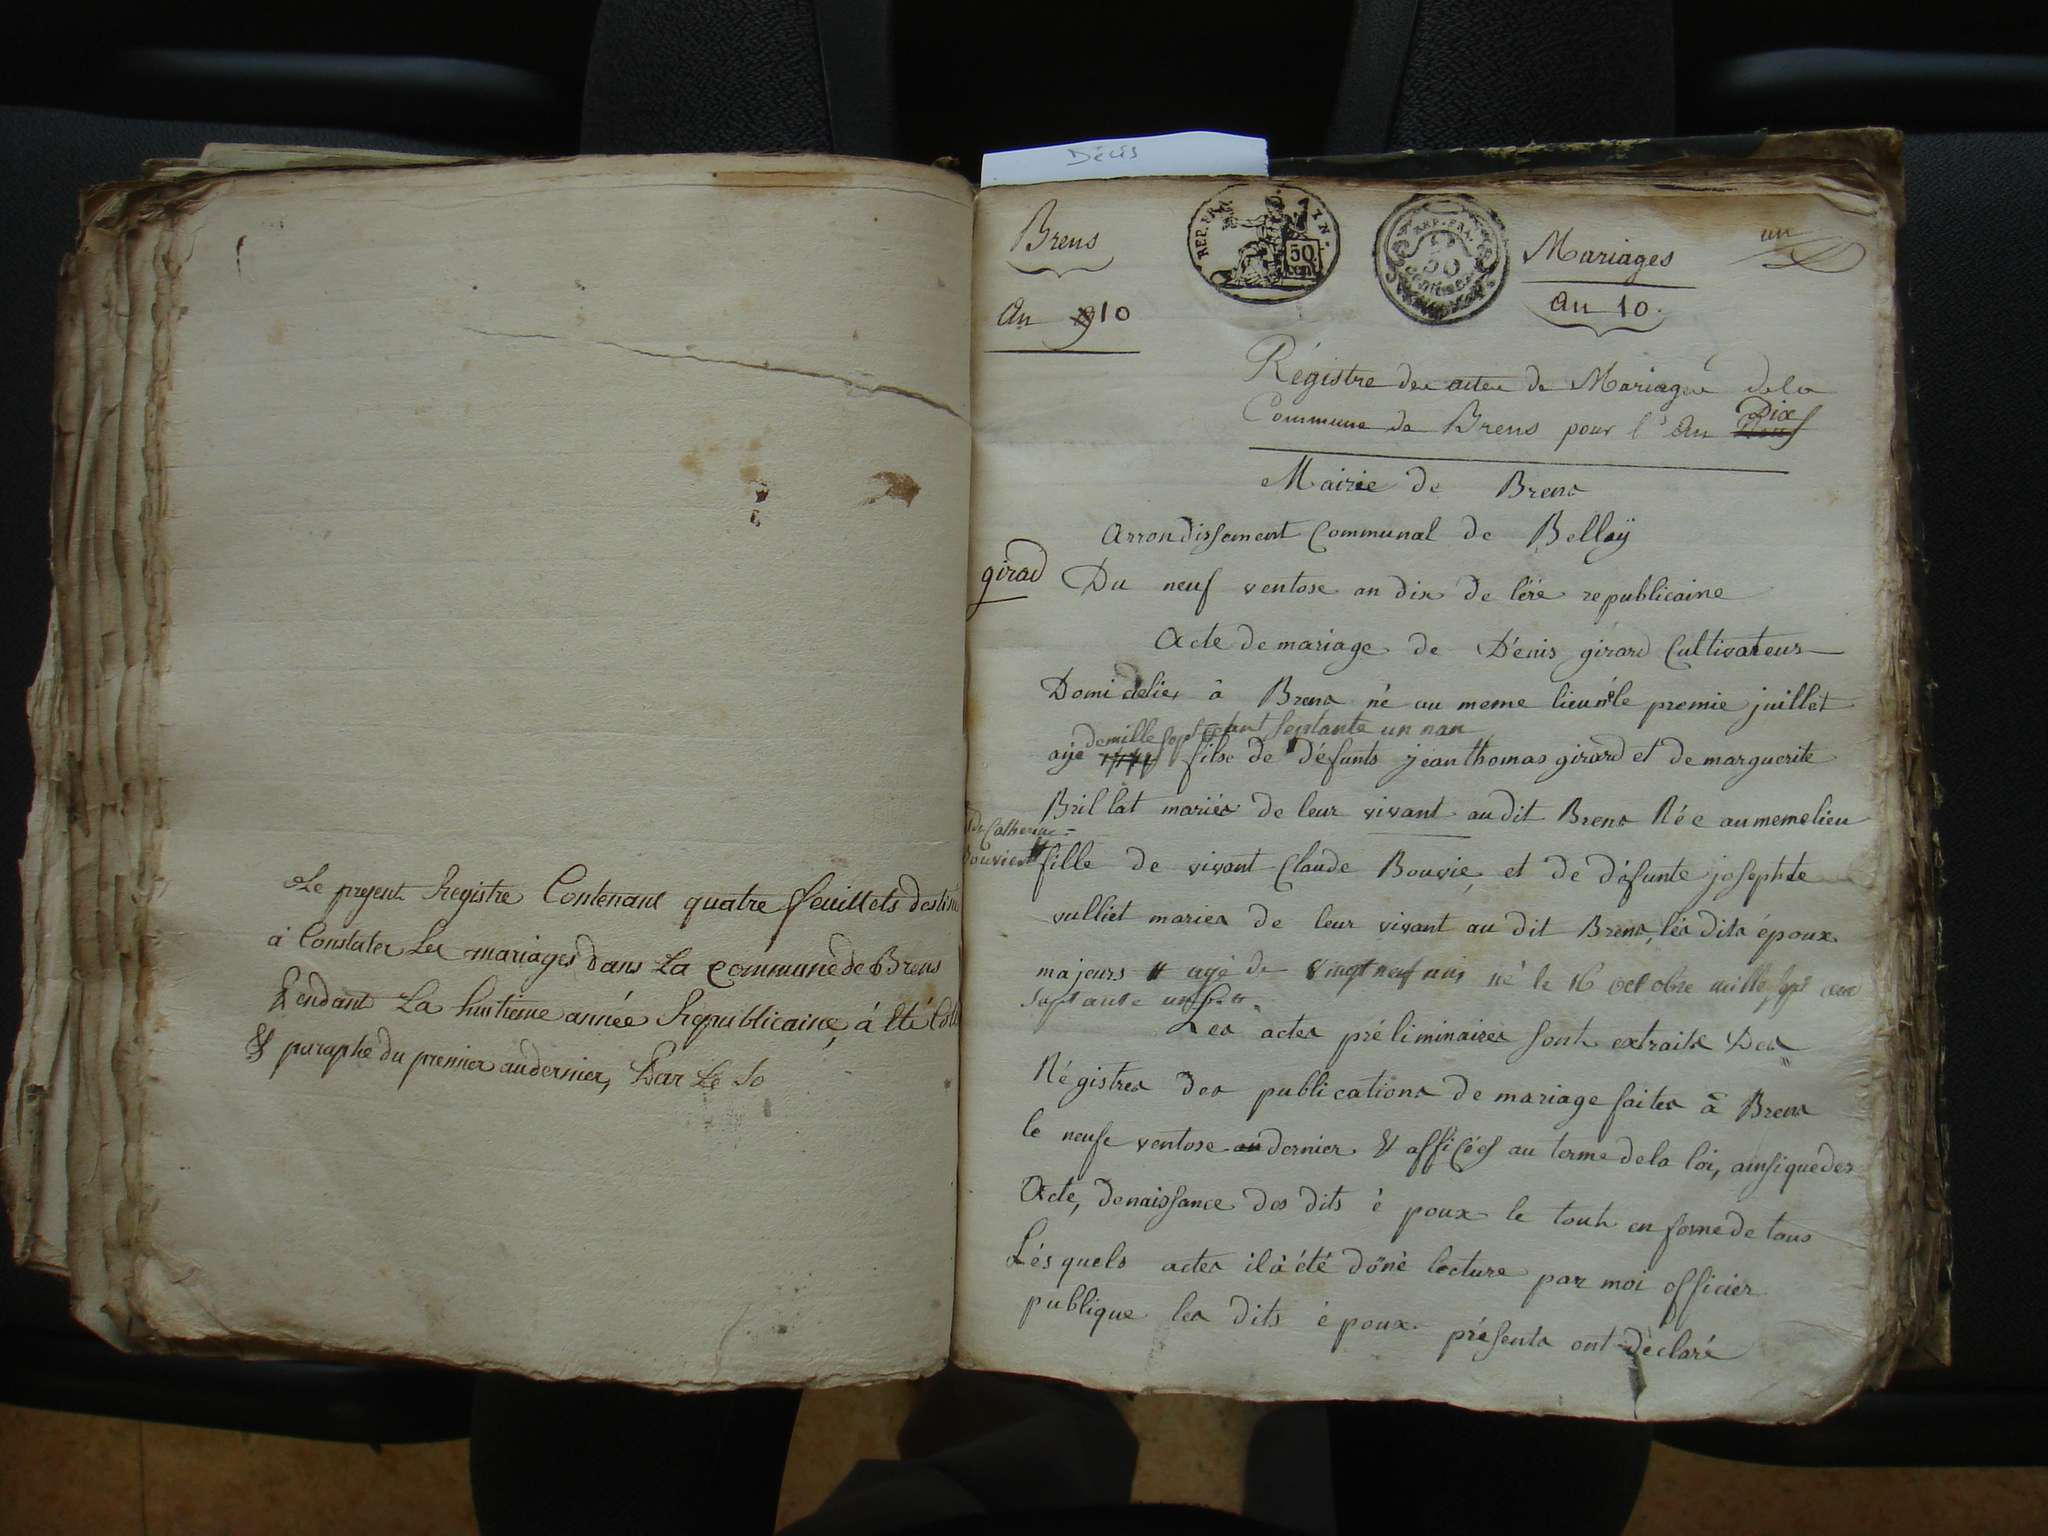 Le present Registre Contenant quatre feuillets destiné
à Constater Les mariages dans La Commune de Brens
Pendant La huitieme année Republicaine, à été Coté
& paraphé du premier au dernier, Par Le So
Décès
Brens
An 10
REP. FRA
50 cent
REP. FRA.
50
centimes
Mariages
An 10.
un
Régistre des actes de Mariages de la
Commune de Brens pour l'An Dix
Mairie de Brens
Arrondissement Communal de Belley
girard
Du neuf ventose an dix de l'ére republicaine
Acte de mariage de Dénis girard Cultivateur
Domicielié à Brens né au meme lieu le premie juillet
de mille sept cent septante un nan
agé filse de défunts jean thomas girard et de marguerite
Brillat mariés de leur vivant audit Brens Née au meme lieu
de Catherine
Bouvier
fille de vivant Claude Bouvie, et de défunte josephte
vulliet mariés de leur vivant au dit Brens, lés dits époux
majeurs agé de vingt neuf né le 16 octobre mille sept cen
septante un
Les actes préliminaires sont extraits Des
Régistres des publications de mariage faites à Brens
le neufe ventose dernier & afficées au terme de la loi, ainsi que des
Acte, de naissance des dits é poux le tout en forme de tous
Lésquels actes il à été döné lecture par moi officier
publique les dits é poux présents ont déclaré